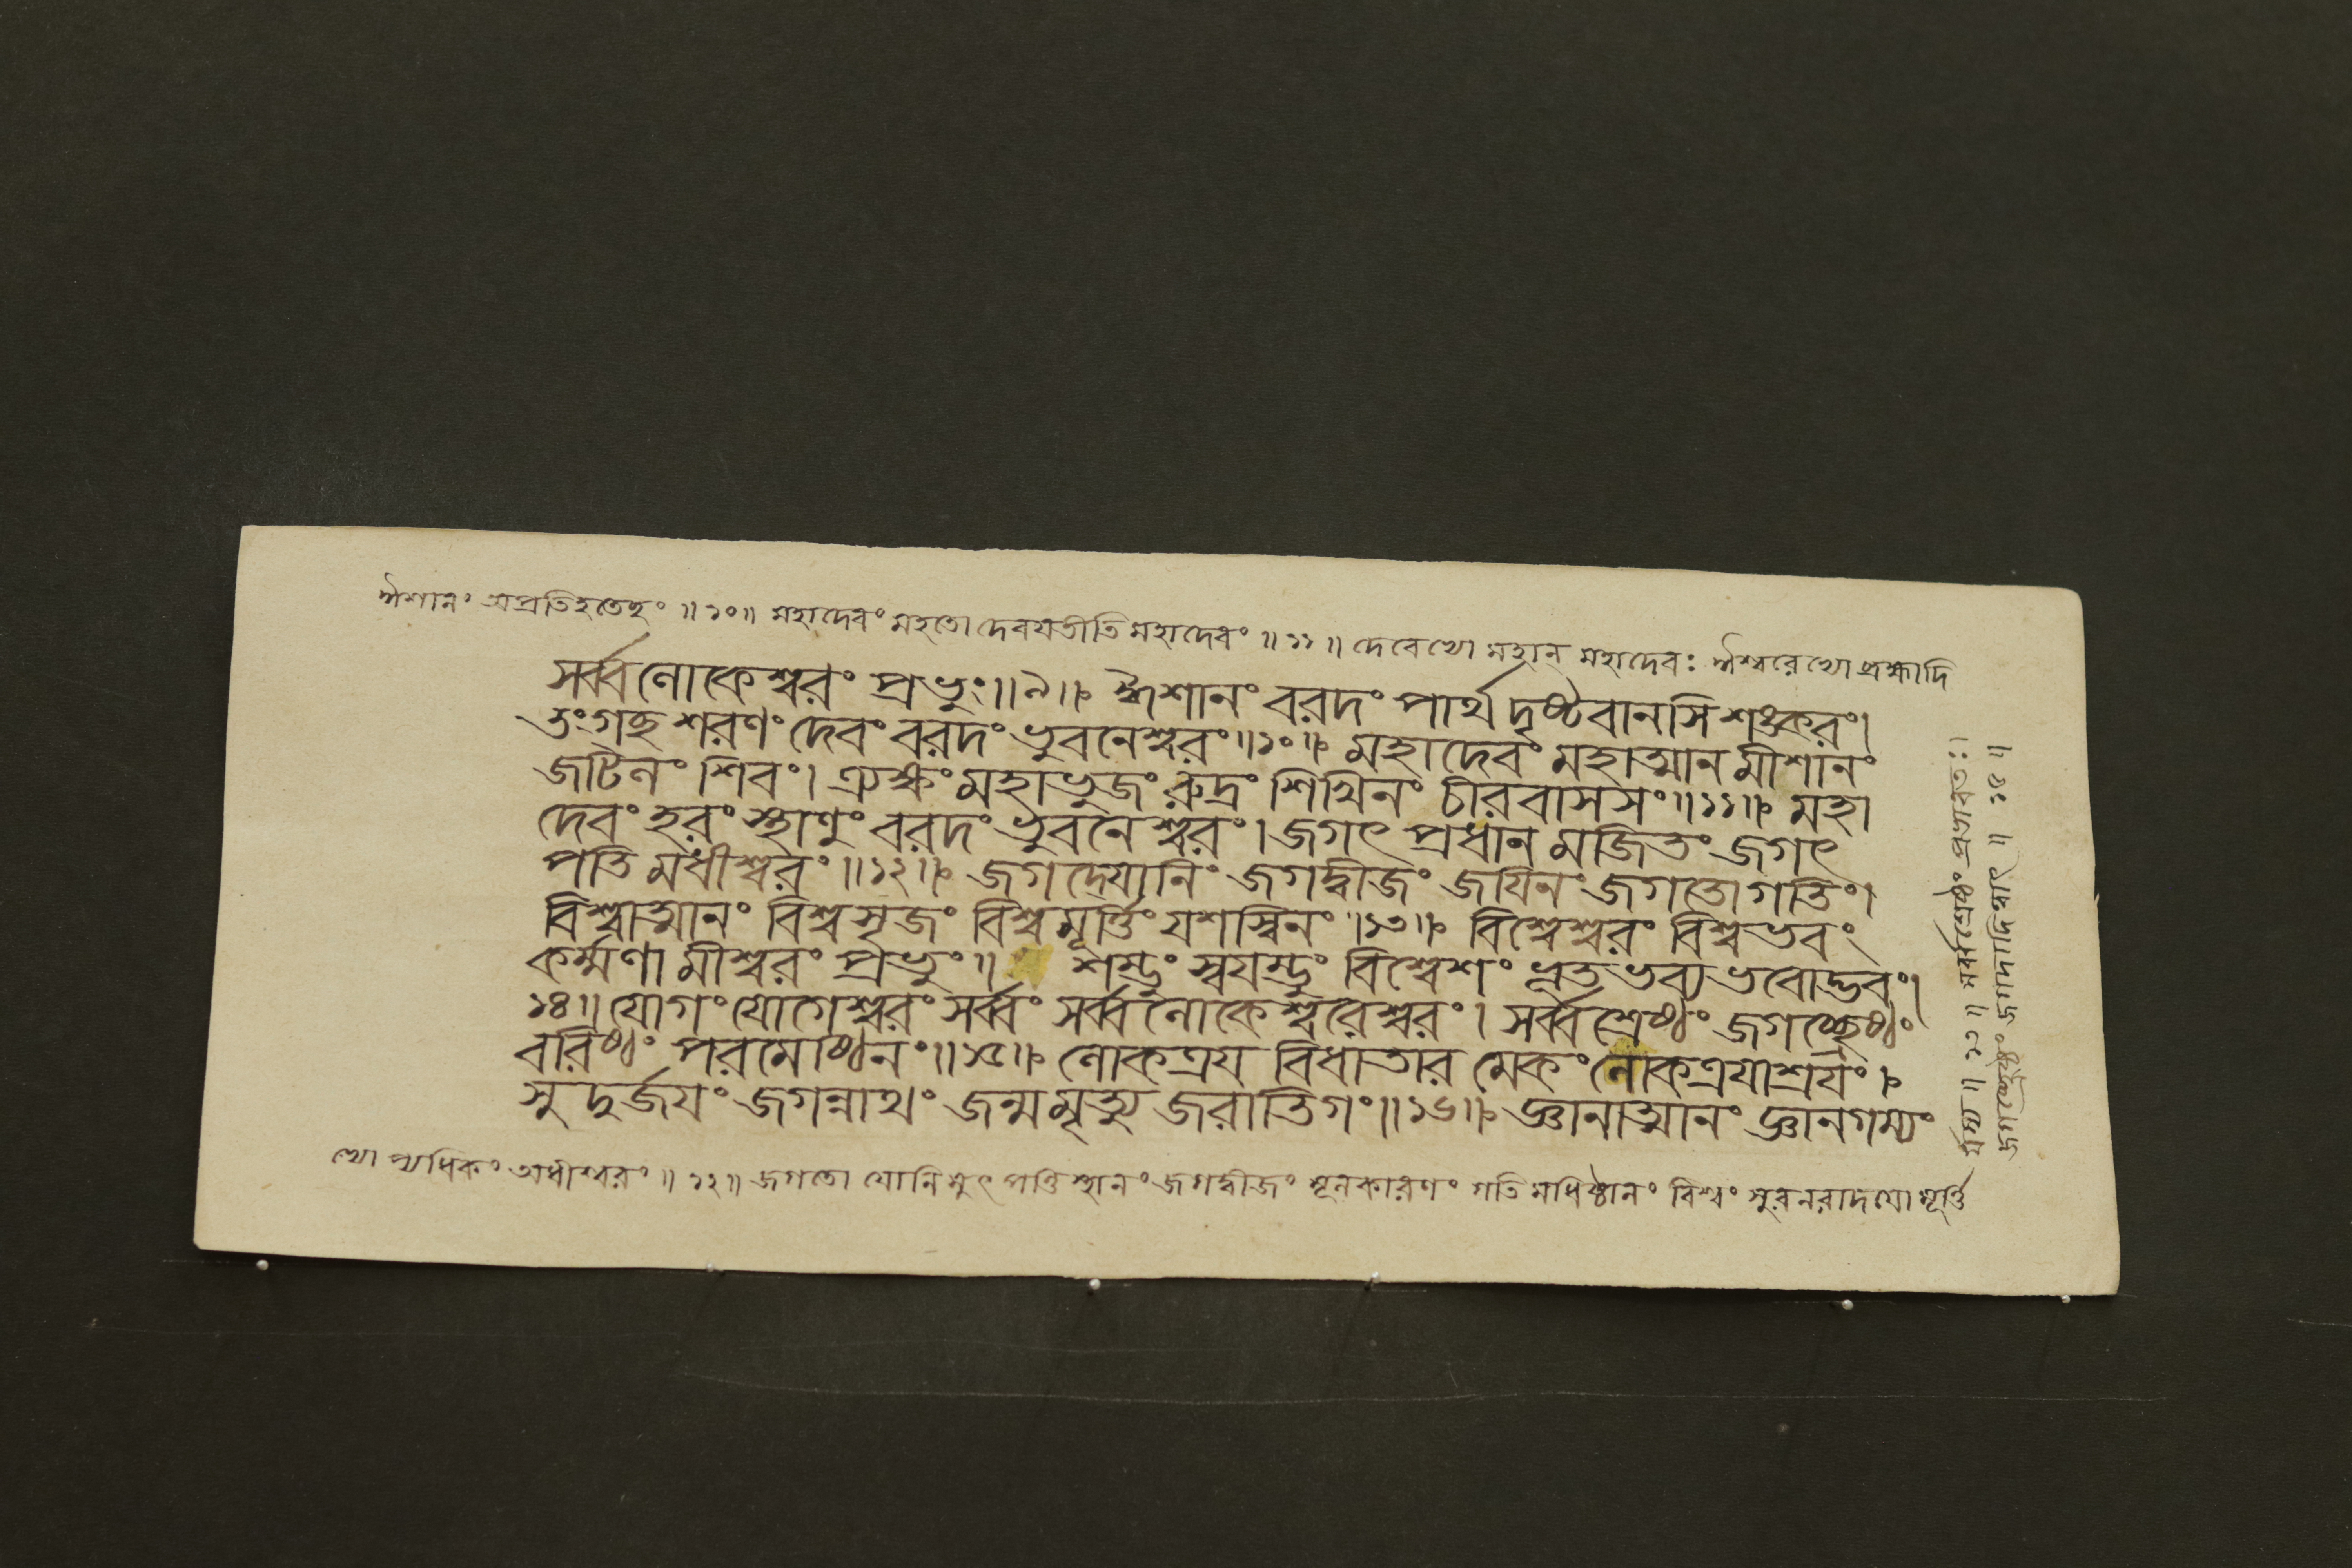 ঈশানং অপ্রতিহতেহং ॥ ১০॥ মহাদেবং মহতো দেবযতীতি মহাদেবং ॥ ১১ ॥ দেবেভ্যো মহান্ মহাদেবঃ ঈশ্বরেভ্যো ব্রহ্মাদি
সর্ব্বলোকেশ্বরং প্রভুং॥৯॥ ঈশানং বরদং পার্থ দৃষ্টবানসি শঙ্করং।
তং গচ্ছ শরণং দেবং বরদং ভুবনেশ্বরং॥১০॥ মহাদেবং মহাত্মান মীশানং
জটিনং শিবং। ত্র্যক্ষং মহাভুজং রুদ্রং শিখিনং চীরবাসসং॥১১॥ মহা
দেবং হরং স্থাণুং বরদং ভুবনেশ্বরং। জগৎ প্রধান মজিতং জগৎ
পতি মধীশ্বরং॥১২॥ জগদ্যোনিং জগদ্বীজং জযিনং জগতো গতিং।
বিশ্বাত্মানং বিশ্বসৃজং বিশ্বমূর্ত্তিং যশস্বিনং॥১৩॥ বিশ্বেশ্বরং বিশ্বভবং
কর্ম্মণা মীশ্বরং প্রভুং॥ শম্ভুং স্বযম্ভুং বিশ্বেশং ভূতভব্যভবোদ্ভবং।
১৪॥ যোগং যোগেশ্বরং সর্ব্বং সর্ব্বলোকেশ্বরেশ্বরং। সর্ব্বশ্রেষ্ঠং জগচ্ছ্রেষ্ঠং
বরিষ্ঠং পরমেষ্ঠিনং॥১৫॥ লোকত্রয বিধাতার মেকং লোকত্রযাশ্রযং।
সুদুর্জযং জগন্নাথং জন্মমৃত্যু জরাতিগং॥১৬॥ জ্ঞানাত্মানং জ্ঞানগম্যং
ভ্যো প্যধিকং অধীশ্বরং ॥ ১২॥ জগতো যোনি মুৎপত্তিস্থানং জগদ্বীজং মূলকারণং গতি মধিষ্ঠানং বিশ্বং সুরনরাদযো মূর্ত্তি
র্যস্য ॥ ১৩ ॥ সর্ব্বশ্রেষ্ঠং প্রভাবতঃ।
জগচ্ছ্রেষ্ঠং জগদাদিত্বাৎ ॥ ১৫ ॥